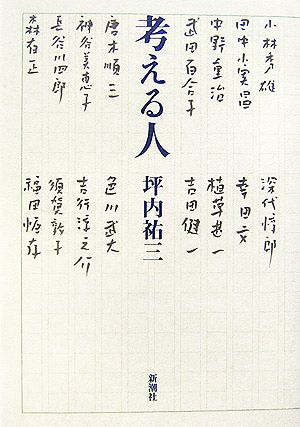 小林秀雄
田中小実昌
中野重治
武田百合子
唐木順三
神谷美恵子
長谷川四郎
森有正
考える人
坪内祐三
深代惇郎
幸田文
植草甚一
吉田健一
色川武大
吉行淳之介
須賀敦子
福田恆存
新潮社